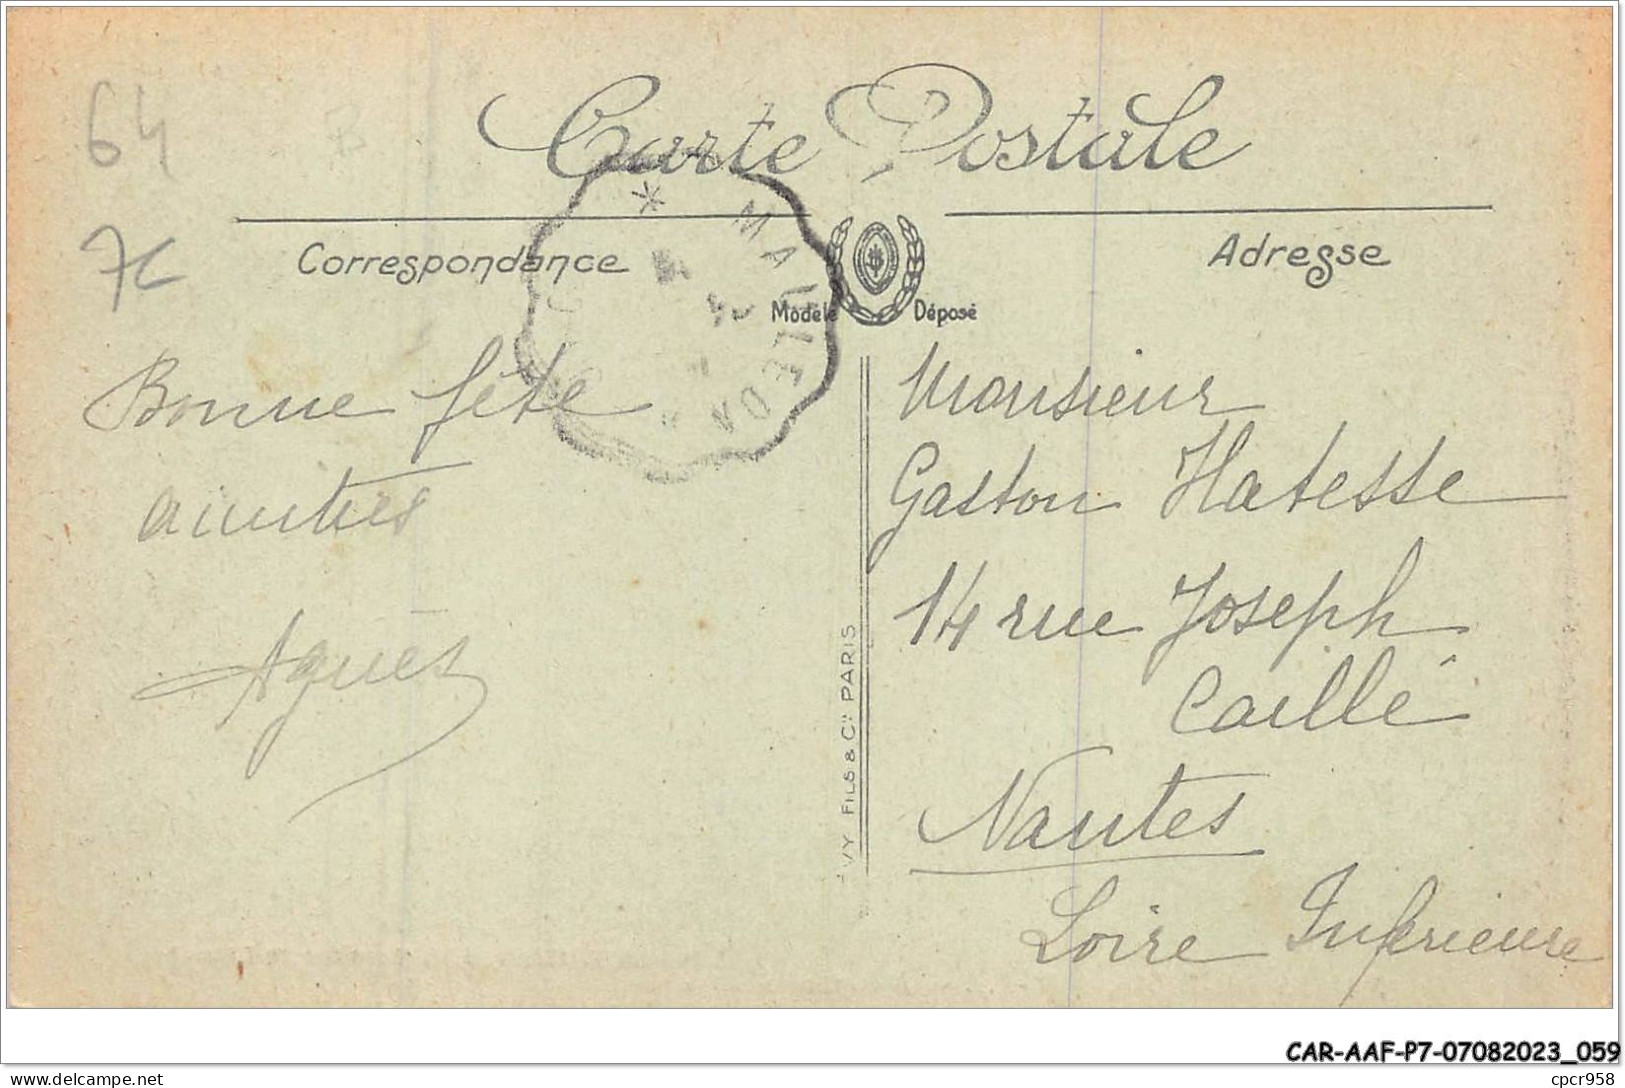 64
7C
Carte Postale
Correspondance
Adresse
Modèle Déposé
Bonne fête
amitiés
Agnès
Monsieur
Gaston Hatesse
14 rue Joseph
Caillé
Nantes
Loire Inférieure
VY FILS & Cie PARIS
CAR-AAF-P7-07082023_059
cpcr958